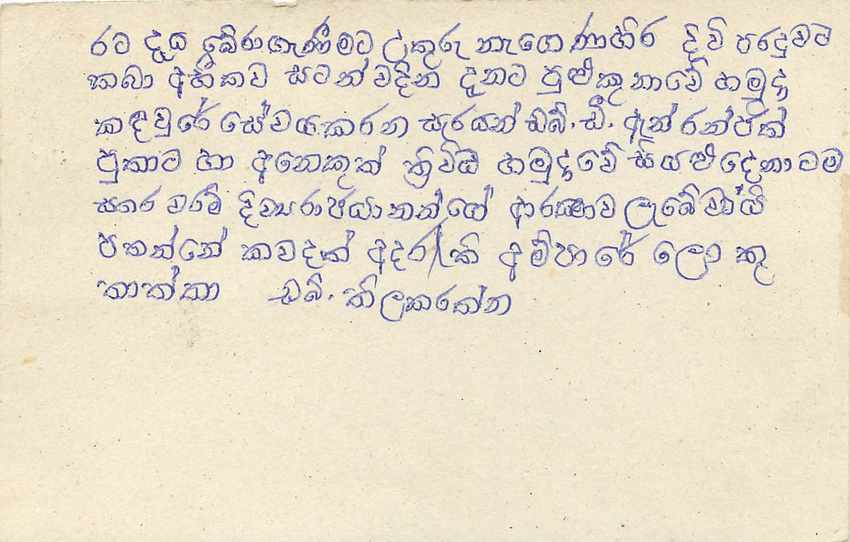 රට දැය බේරාගැණීමට උතුරු නැගෙණහිර දිවි පරදුවට
තබා අභීතව සටන්වදින දනට පුළුකුනාවේ හමුදා
කඳවුරේ සේවය කරන සැරයන් ඩබ්. ඩී. ඇන් රන්ජිත්
පුතාට හා අනෙකුත් ත්‍රිවිධ හමුදාවේ සියළු දෙනාටම
සතර වරම් දිව්‍යරාජයානන්ගේ ආරක්‍ෂාව ලැබේවායි
පතන්නේ කවදත් අදරැති අම්පාරේ ලොකු
තාත්තා ඩබ්. තිලකරත්න